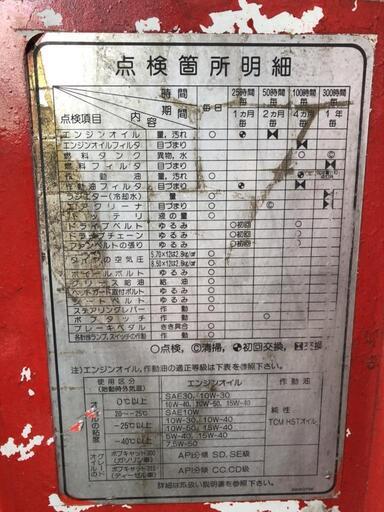 点検箇所明細
時間 25時間毎 50時間毎 100時間毎 300時間毎
点検項目 内容 期間 毎日 1カ月毎 2カ月毎 4カ月毎 1年毎
エンジンオイル 量,汚れ ○
エンジンオイルフィルタ 目づまり
燃料タンク 異物,水 ○ Ⓒ
燃料フィルタ 目づまり
作動油 量,汚れ ○
作動油フィルタ 目づまり
ラジエター(冷却水) 量 ○
エアクリーナ 目づまり
バッテリ 液の量 ○
ドライブベルト ゆるみ ○初回 ○
ドライブチェーン ゆるみ ○初回 ○
ファンベルトの張り ゆるみ ○初回 ○
タイヤの空気圧
ホイールボルト ゆるみ ○
グリース給油 給油 ○
ヘッドガード取付ボルト ゆるみ ○
シートベルト ゆるみ ○
ステアリングレバー 作動 ○
ボブタッチ 作動 ○
ブレーキペダル きき具合 ○
各動機ランプ,スイッチの作動 作動 ○
○点検, Ⓒ清掃, 初回交換, 交換
注)エンジンオイル,作動油の適正等級は下表を参照下さい。
使用区分(始動時外気温) エンジンオイル 作動油
オイルの粘度
0℃以上 SAE30, 10W-30
10W-40, 10W-50, 15W-40
20~-25℃ SAE10W
-25℃以上 10W-30, 10W-40
10W-50, 15W-40
-40℃以上 5W-40, 15W-40
7.5W-50
純性
TCM HSTオイル
オイルのグレード
ボブキャット300(ガソリン車) API分類 SD,SE級
(ディーゼル車) API分類 CC,CD級
詳細は取扱い説明書を参照下さい。